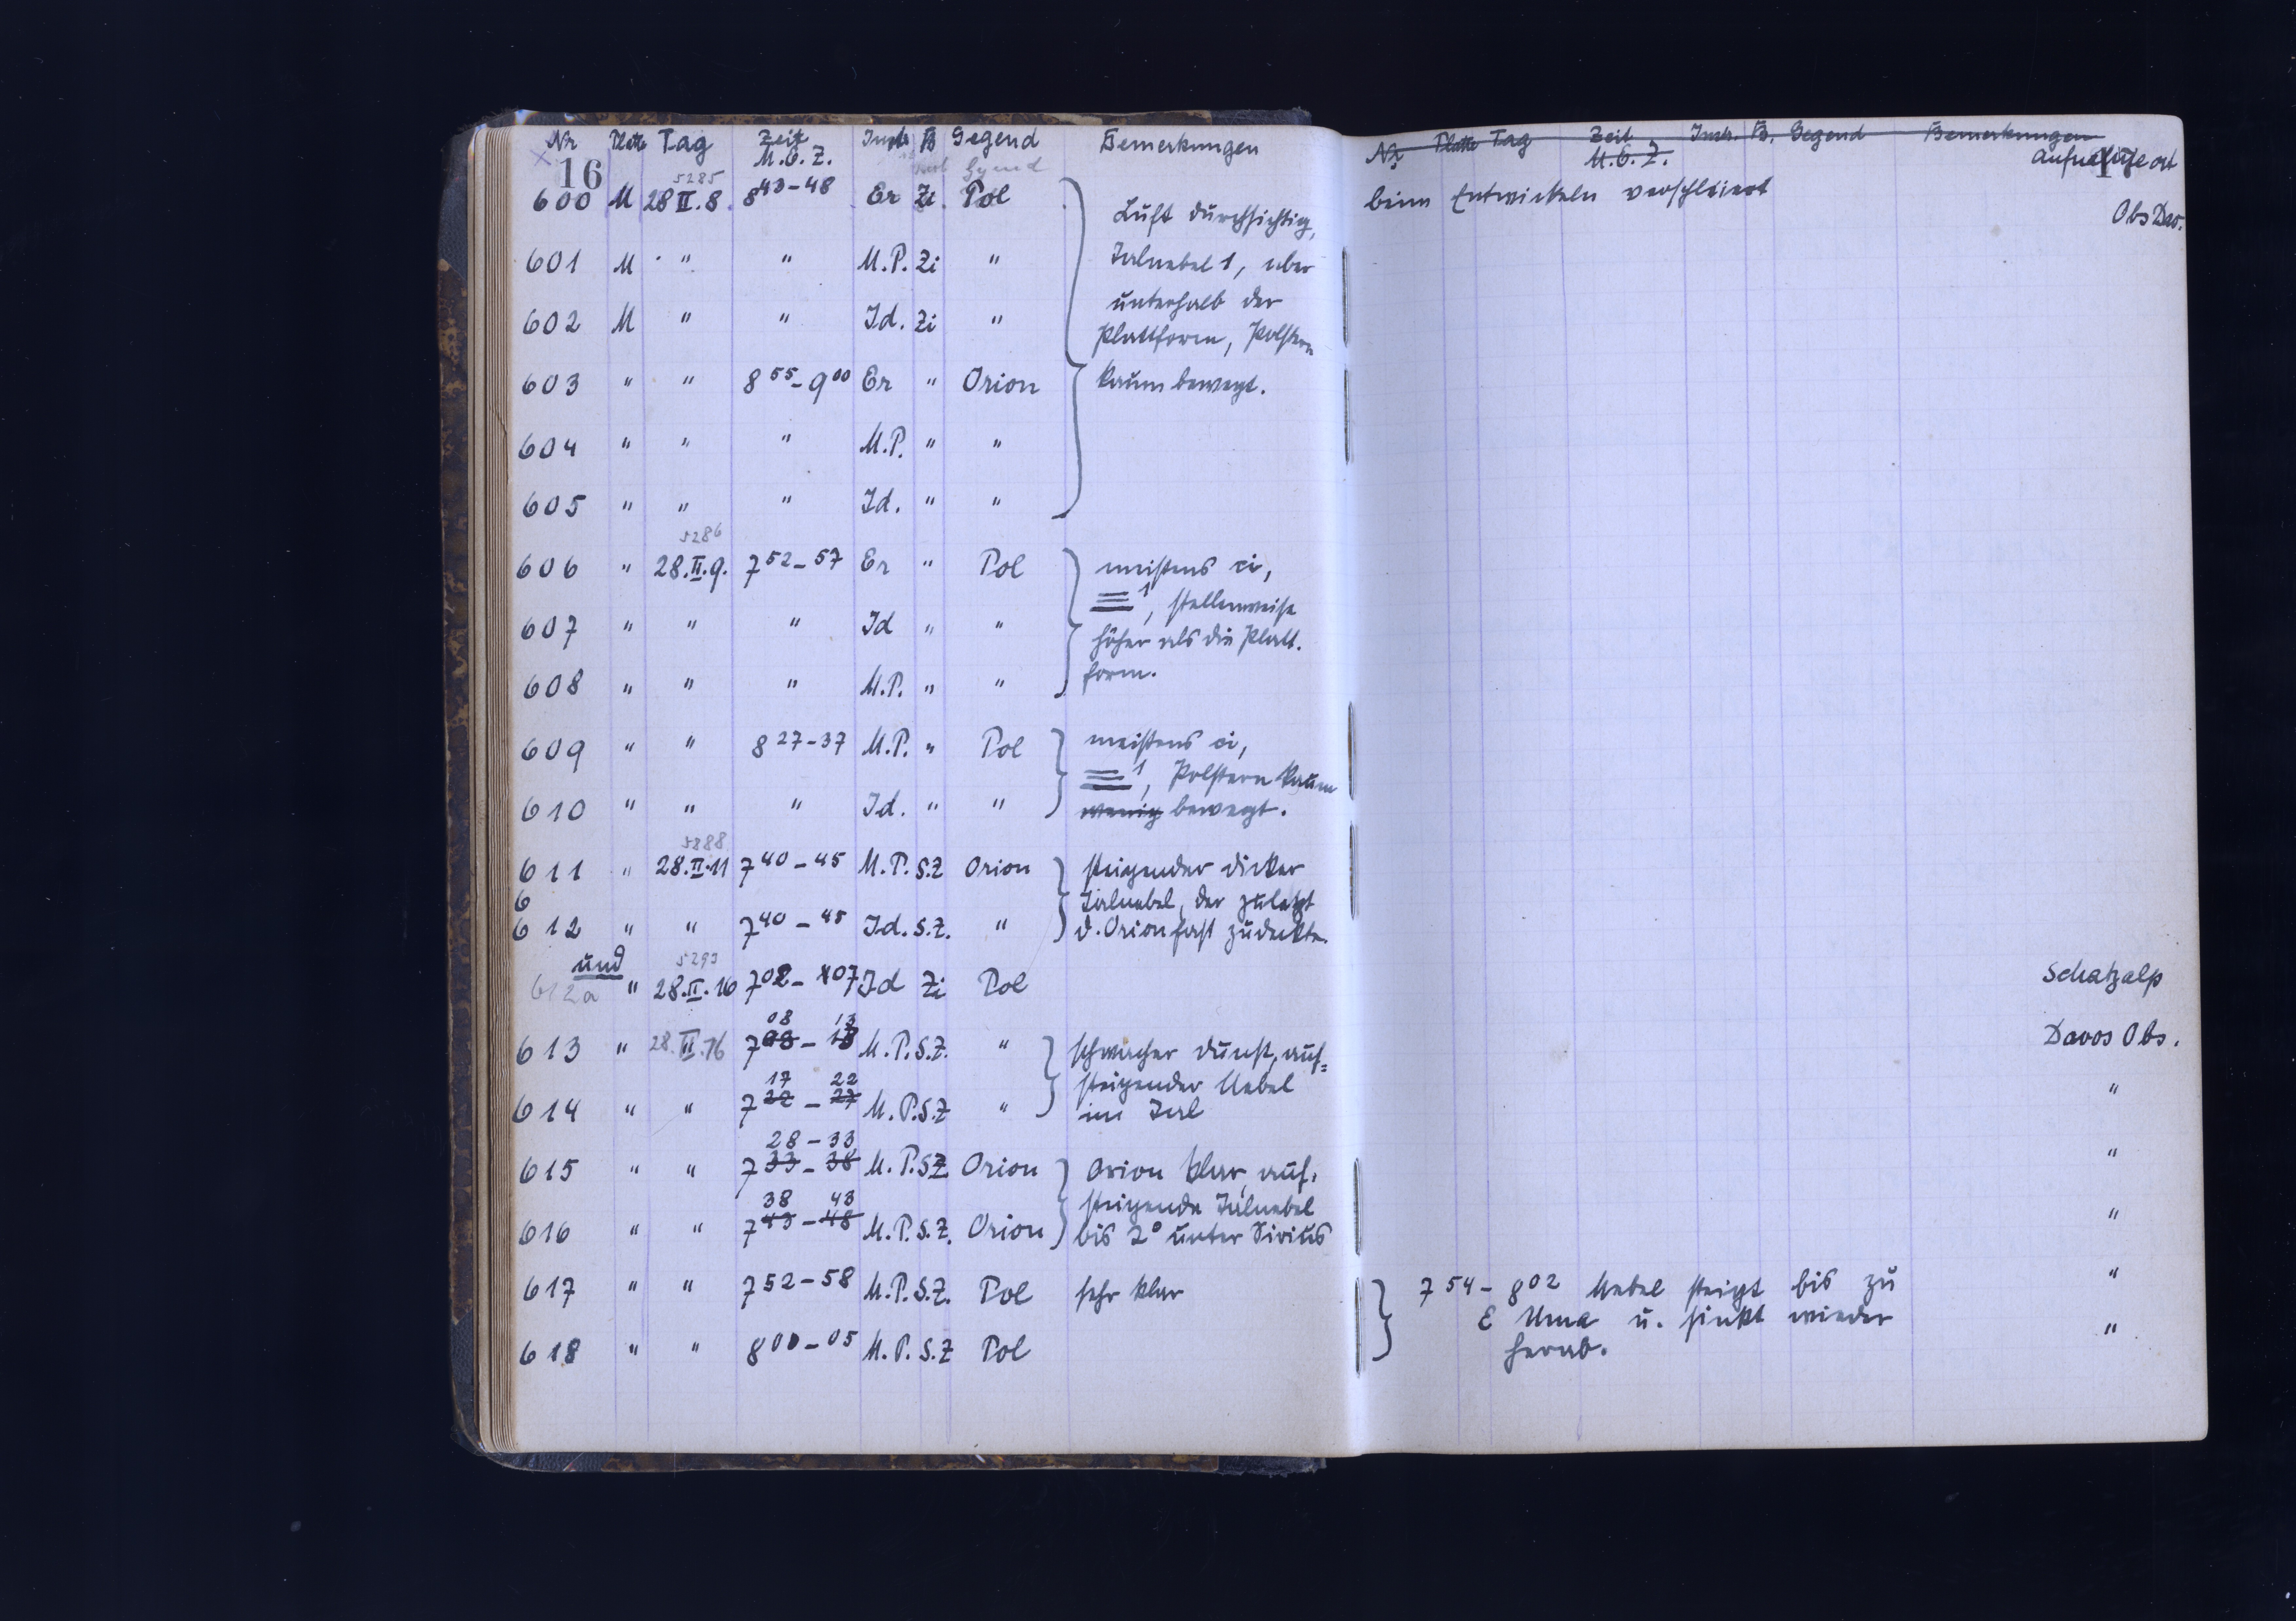 Nr Platte Tag Zeit Instr. B Gegend Bemerkungen
M.E.Z.
16
5285
600 M 28 II.8. 8 43-48 Er Zi. Pol
Luft durchsichtig,
601 M " " M.P. Zi "
Talnebel 1, aber
unterhalb der
602 M " " Id. Zi "
Plattform, Polstern
603 " " 8 55-9 00 Er " Orion
kaum bewegt.
604 " " " M.P. " "
605 " " " Id. " "
5286
606 " 28.II.9. 7 52-57 Er " Pol
meistens ci,
≡ 1, stellenweise
607 " " " Id " "
höher als die Platt-
form.
608 " " " M.P. " "
609 " " 8 27-37 M.P. " Pol
meistens ci,
≡ 1, Polstern kaum
610 " " " Id. " "
wenig bewegt.
5288
611 " 28.II.11 7 40-45 M.P. S.Z Orion
steigender dicker
6
Talnebel, der zuletzt
612 " " 7 40-45 Id. S.Z. "
d. Orion fast zudeckte.
und
5293
612a " 28.II.16 7 02-07 Id Zi Pol
08 13
613 " 28.II.16 7 03-18 M.P. S.Z. "
schwacher Dunst, auf=
17 22
steigender Nebel
614 " " 7 22-27 M.P. S.Z "
im Tal
28-33
615 " " 7 33-38 M.P. S.Z Orion
Orion klar, auf-
38 43
steigende Talnebel
616 " " 7 43-48 M.P. S.Z. Orion
bis 2° unter Sirius
617 " " 7 52-58 M.P. S.Z. Pol sehr klar
618 " " 8 00-05 M.P. S.Z Pol
Nr Platte Tag Zeit Instr. B. Gegend Bemerkungen
M.E.Z.
17
Aufnahmeort
beim Entwickeln verschleiert
Obs Dav.
Schatzalp
Davos Obs.
"
"
"
7 54-8 02 Nebel steigt bis zu "
ε Uma u. sinkt wieder
"
herab.